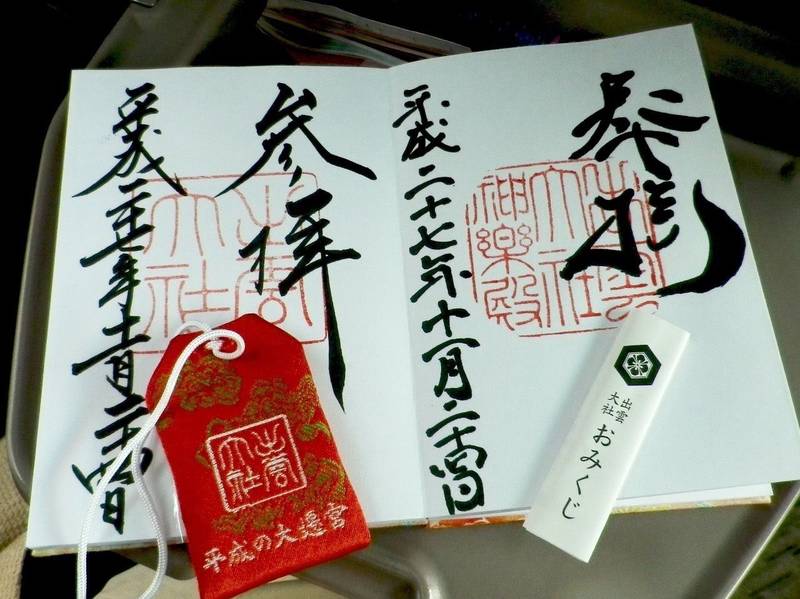 奉拝
出雲
大社
神樂殿
平成二十七年十一月二十四日
参拝
出雲
大社
平成二十七年十一月二十四日
出雲
大社
平成の大遷宮
出雲
大社
おみくじ